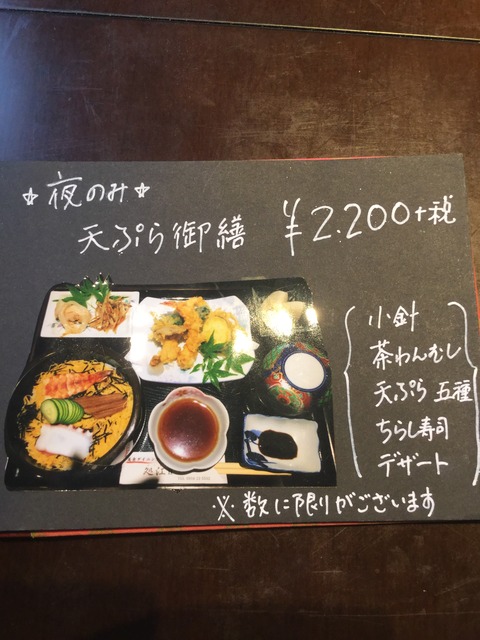 ☆夜のみ☆
天ぷら御繕 ¥2.200+税
小針
茶わんむし
天ぷら 五種
ちらし寿司
デザート
※数に限りがございます